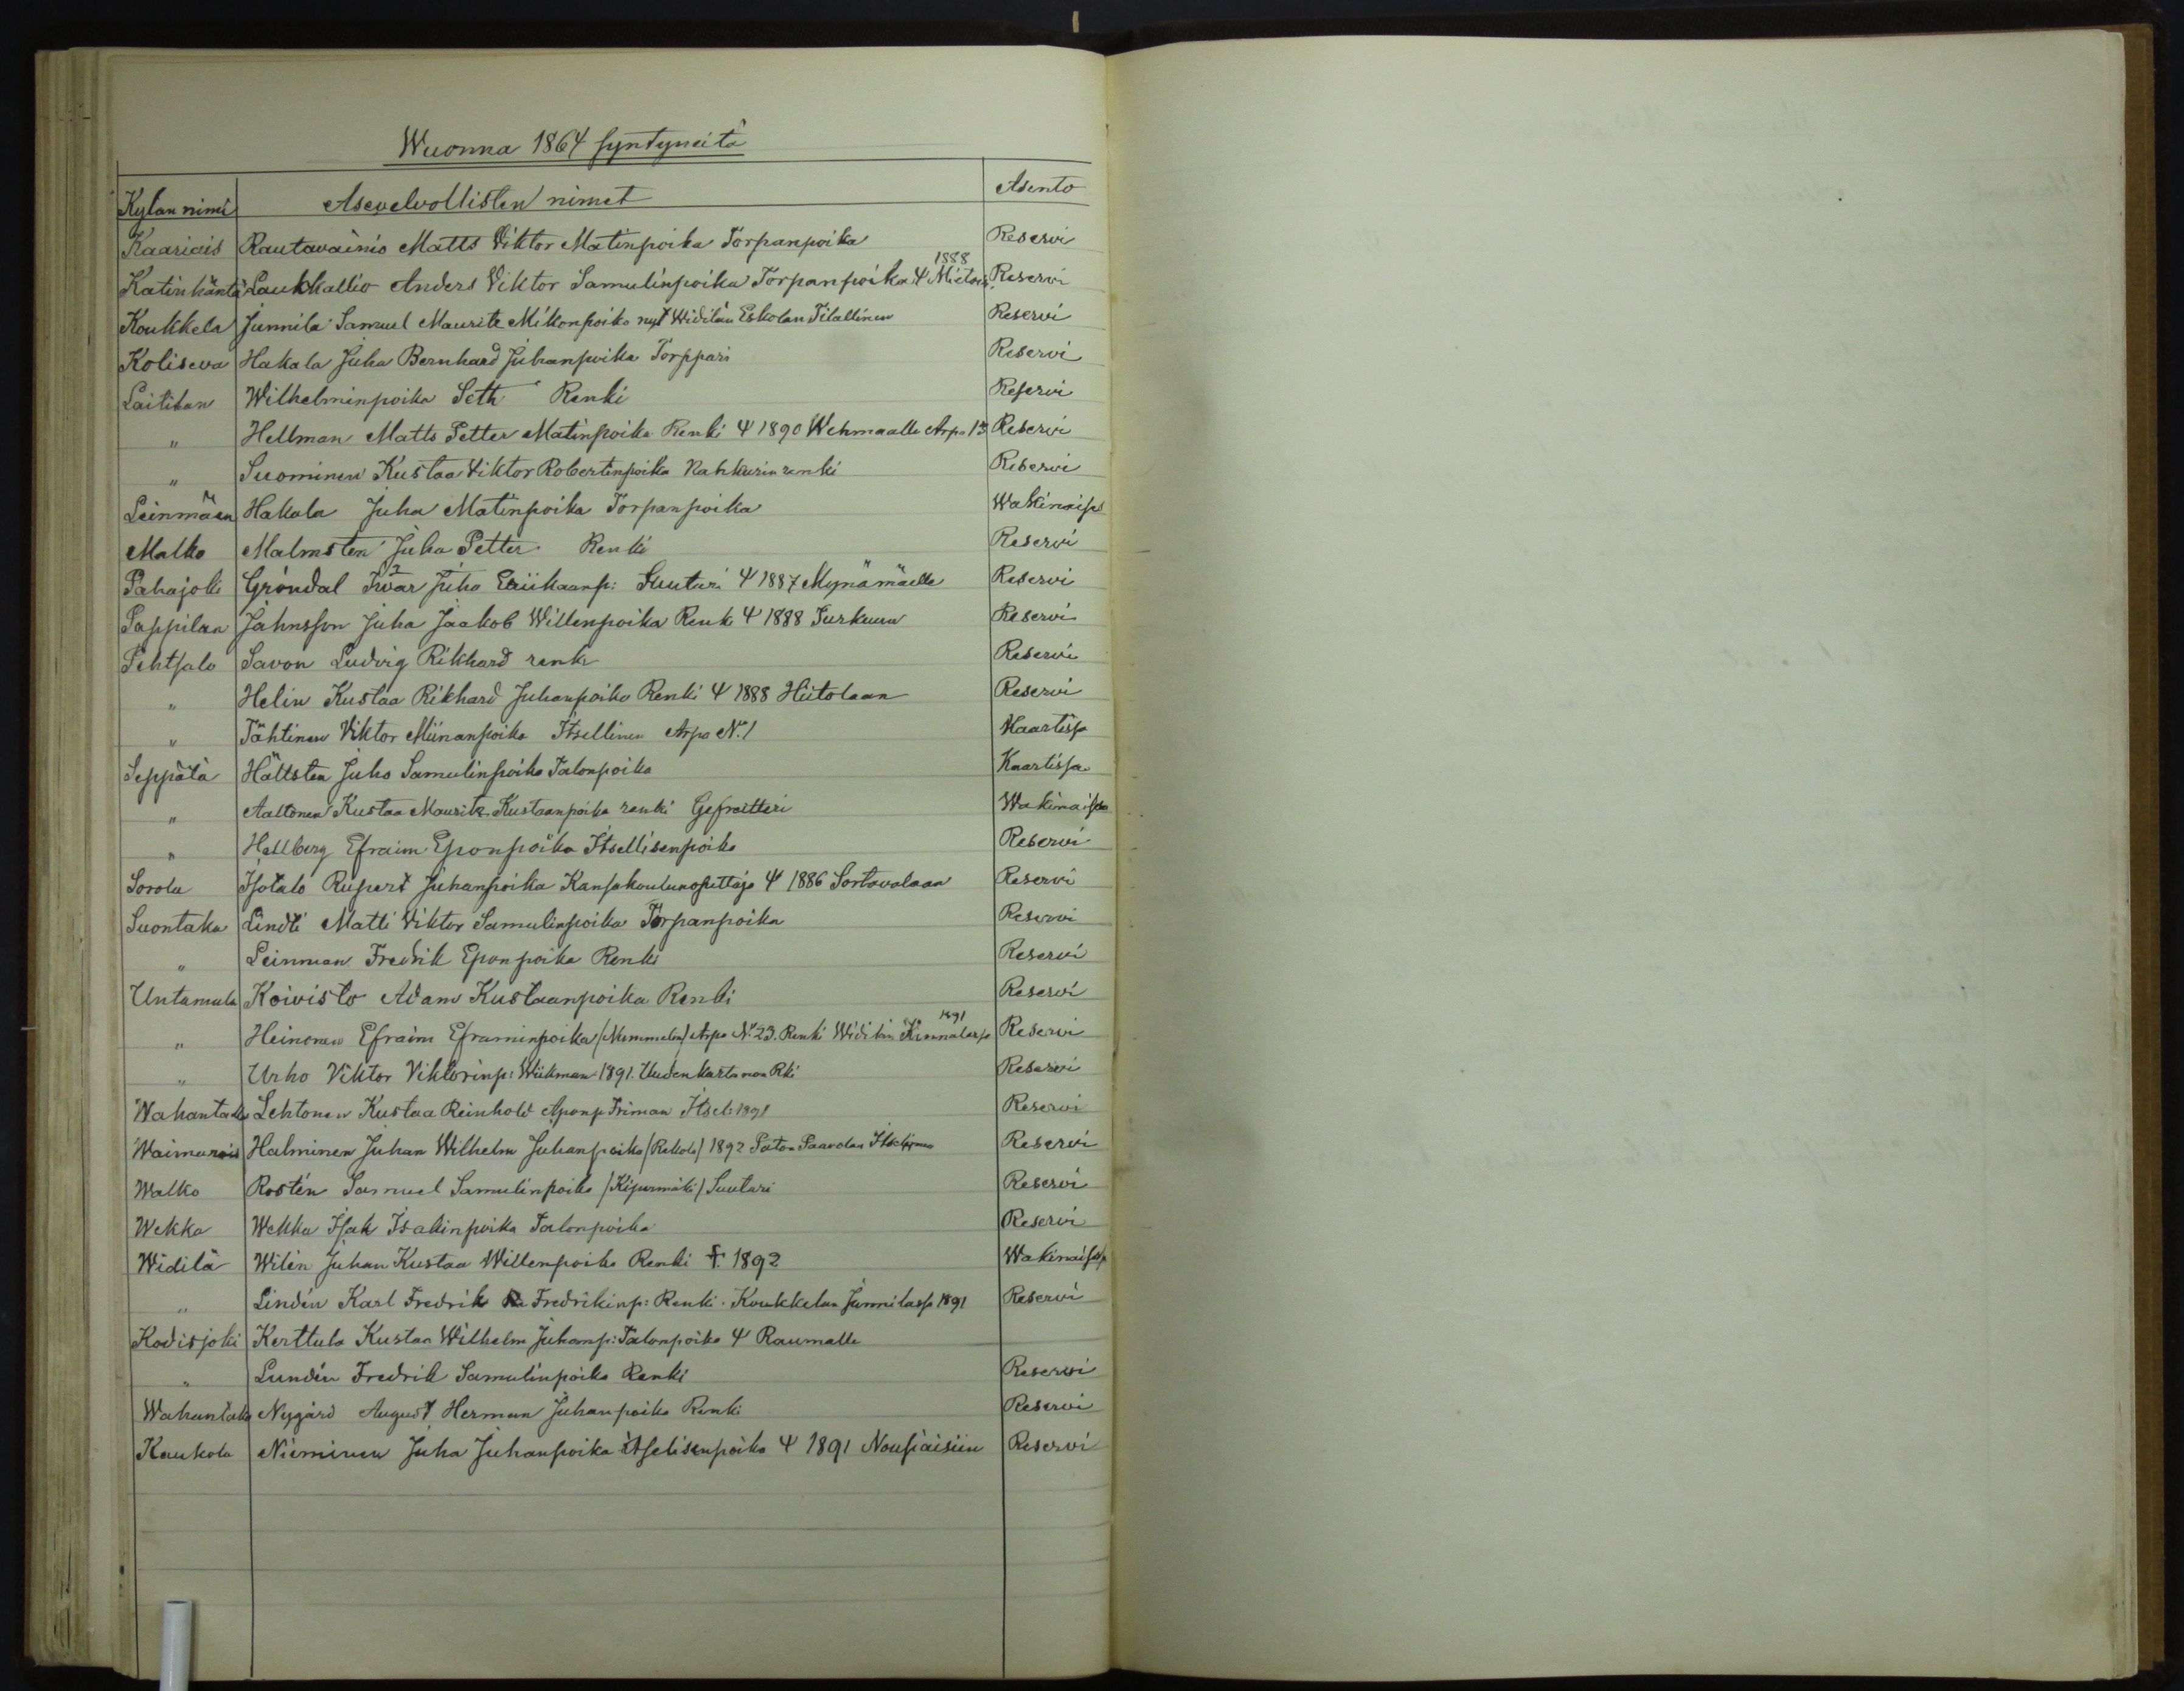 Wuonna 1864 syntyneitä
Kylan nimi Asevelvollisten nimet Asento
Kaariais Rautawainio Matts Viktor Matinpoika Torpanpoika Reservi
1888
Katinhäntä Laukkallio Anders Viktor Samulinpoika Torpanpoika Ψ Mietois. Reservi
Koukkela Junnila Samuel Maurits Mikonpoika nyt Widilän Eskolan Tilallinen Reservi
Koliseva Hakala Juha Bernhard Juhanpoika Torppari Reservi
Laitikan Wilhelminpoika Seth Renki Reservi
" Hellman Matts Petter Matinpoika Renki Ψ 1890 Wehmaalle Arpa 13 Reservi
" Suominen Kustaa Viktor Robertinpoika Nahkurin renki Reservi
Leinmäen Hakala Juha Matinpoika Torpanpoika Wakinaises
Malko Malmsten Juha Petter Renki Reservi
Pahajoki Gröndal Iwar Juho Eriikaanp: Suutari Ψ 1887 Mynämäelle Reservi
Pappilan Jahnsson Juha Jaakob Willenpoika Renk Ψ 1888 Turkuun Reservi
Pehtsalo Savon Ludvig Rikhard renki Reservi
" Helin Kustaa Rikhard Juhanpoika Renki Ψ 1888 Hiitolaan Reservi
" Tähtinen Viktor Miinanpoika Itsellinen Arpa N:1 Kaartissa
Seppälä Hättsten Juho Samulinpoika Talonpoika Kaartissa
" Aaltonen Kustaa Maurits Kustaanpoika renki Gefreitteri Wakinaisessa
" Hellberg Efraim Eponpoika Itsellisenpoika Reservi
Sorola Isotalo Rupert Juhanpoika Kansakoulunopettaja Ψ 1886 Sortavalaan Reservi
Suontaka Lindti Matti Viktor Samulinpoika Torpanpoika Reservi
" Leinman Fredrik Eponpoika Renki Reservi
Untamala Koivisto Adam Kustaanpoika Renki Reservi
1891
" Heinonen Efraim Eframinpoika (Mommalen) Arpa N:o 23. Renki Widilän Kinnalassa Reservi
" Urho Viktor Viktorinp: Wiikman 1891. Uudenkartanon Rki Reservi
Wahantaka Lehtonen Kustaa Reinhold Aponp Friman Itsel: 1891 Reservi
Waimarois Halminen Juhan Wilhelm Juhanpoika (Rekola) 1892 Paavolan Itsellinen Reservi
Walko Rostén Samuel Samulinpoika (Kijurmäki) Suutari Reservi
Wekka Wekka Isak Isakinpoika Talonpoika Reservi
Widilä Wilén Juhan Kustaa Willenpoika Renki † 1892 Wakinaises
" Lindén Karl Fredrik Fredrikinp: Renki. Koukkelan Junnilassa 1891 Reservi
Kodisjoki Kerttula Kustaa Wilhelm Juhanp: Talonpoika Ψ Raumalle
" Lundén Fredrik Samulinpoika Renki Reservi
Wahantaka Nygård August Herman Juhanpoika Renki Reservi
Kaukola Nieminen Juha Juhanpoika itselisenpoika Ψ 1891 Nousiaisiin Reservi